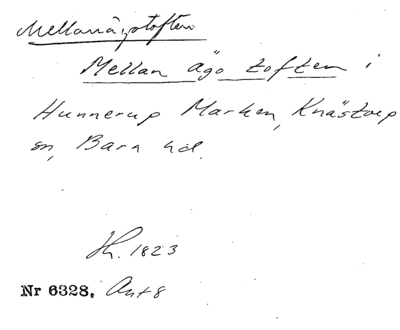 Mellanägotoften
Mellan ägo toften i
Hunnerup Marken, Knästorp
sn, Bara hd.
Sk. 1823
Nr 6328. Ant 8